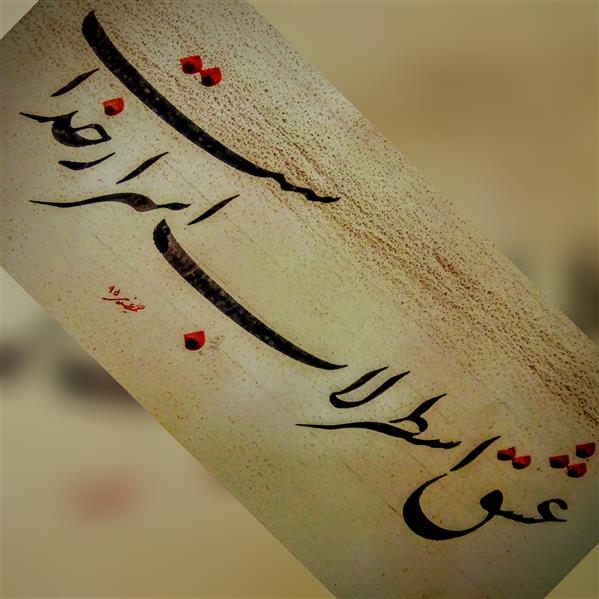 عشق اسطرلاب اسرار خداست
۹۵